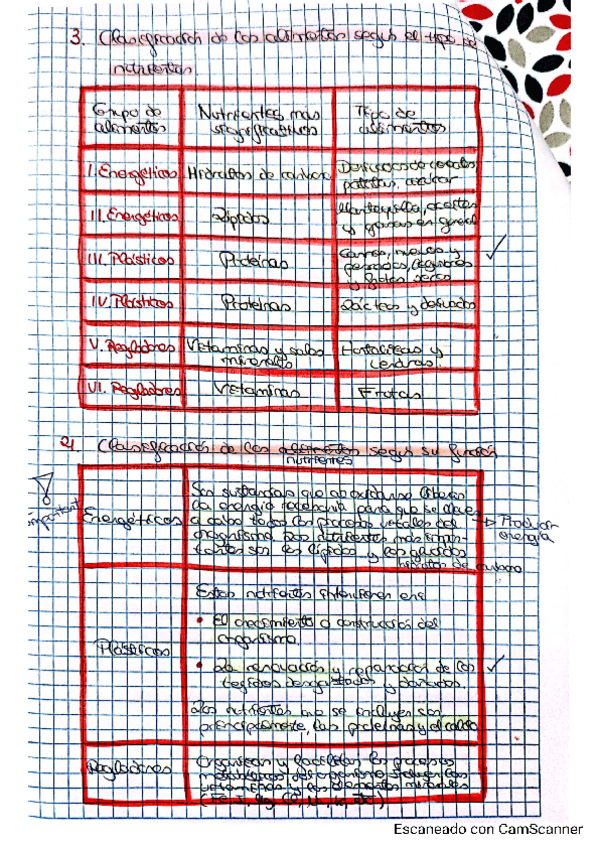 3. Clasificación de los alimentos según el tipo de
nutrientes
Grupo de
alimentos
Nutrientes más
significativos
Tipo de
alimentos
I. Energéticos
Hidratos de carbono
Derivados de cereales,
patatas, azúcar
II. Energéticos
Lípidos
Mantequilla, aceites
y grasas en general
III. Plásticos
Proteínas
Carnes, huevos y
pescados, legumbres
y frutos secos
IV. Plásticos
Proteínas
Lácteos y derivados
V. Reguladores
Vitaminas y sales
minerales
Hortalizas y
verduras
VI. Reguladores
Vitaminas
Frutas
4. Clasificación de los alimentos según su función
nutrientes
important
Energéticos
Son sustancias que al oxidarse liberan
la energía necesaria para que se lleven
a cabo todos los procesos vitales del
organismo. Los nutrientes más impor-
tantes son los lípidos y los glúcidos
hidratos de carbono
→ Producen
energía
Plásticos
Estos nutrientes intervienen en:
• El crecimiento o construcción del
organismo.
• La renovación y reparación de los
tejidos desgastados y dañados.
Los nutrientes que se incluyen son
principalmente, las proteínas y el calcio
Reguladores
Organizan y facilitan los procesos
metabólicos del organismo. Incluyen las
vitaminas y los elementos minerales
Escaneado con CamScanner